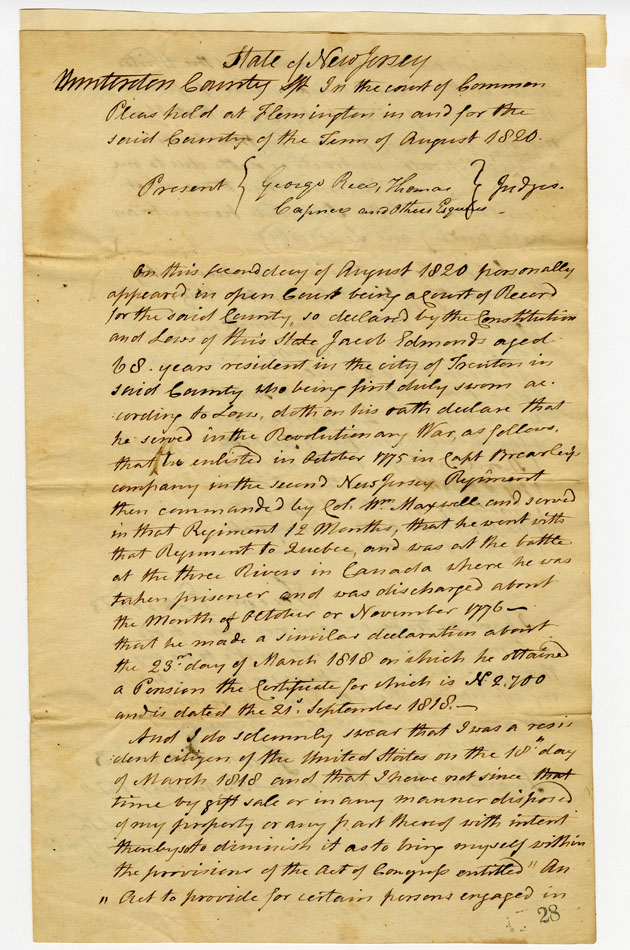 State of New Jersey
Hunterdon County Ss In the court of Common
Pleas held at Flemington in and for the
said County of the Term of August 1820.
Present { George Rea, Thomas } Judges.
Capner and others Esquires
On this second day of August 1820 personally
appeared in open Court being a Court of Record
for the said County, so declared by the Constitution
and Laws of this State Jacob Edmonds aged
68 . years resident in the city of Trenton in
said County who being first duly sworn ac-
cording to Law, doth on his oath declare that
he served in the Revolutionary War, as follows,
that he enlisted in October 1775 in Capt Brearley's
company in the second New Jersey Regiment
then commanded by Col. Wm Maxwell and served
in that Regiment 12 Months, that he went with
that Regiment to Quebec, and was at the battle
at the three Rivers in Canada where he was
taken prisoner and was discharged about
the Month of October or November 1776 —
that he made a similar declaration about
the 23rd day of March 1818 on which he obtained
a Pension the Certificate for which is No 2,700
and is dated the 21st September 1818. —
And I do solemnly swear that I was a resi
dent citizen of the United States on the 18th day
of March 1818 and that I have not since that
time by gift sale or in any manner disposed
of my property or any part thereof with intent
thereby so to diminish it as to bring myself within
the provisions of the Act of Congress entitled " An
" Act to provide for certain persons engaged in
28